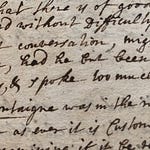 that there is of good
d without difficulty
t conversation, mig
, had he but been
, & spoke too much
ontaigne was in the r
as ever it is Custom
it be